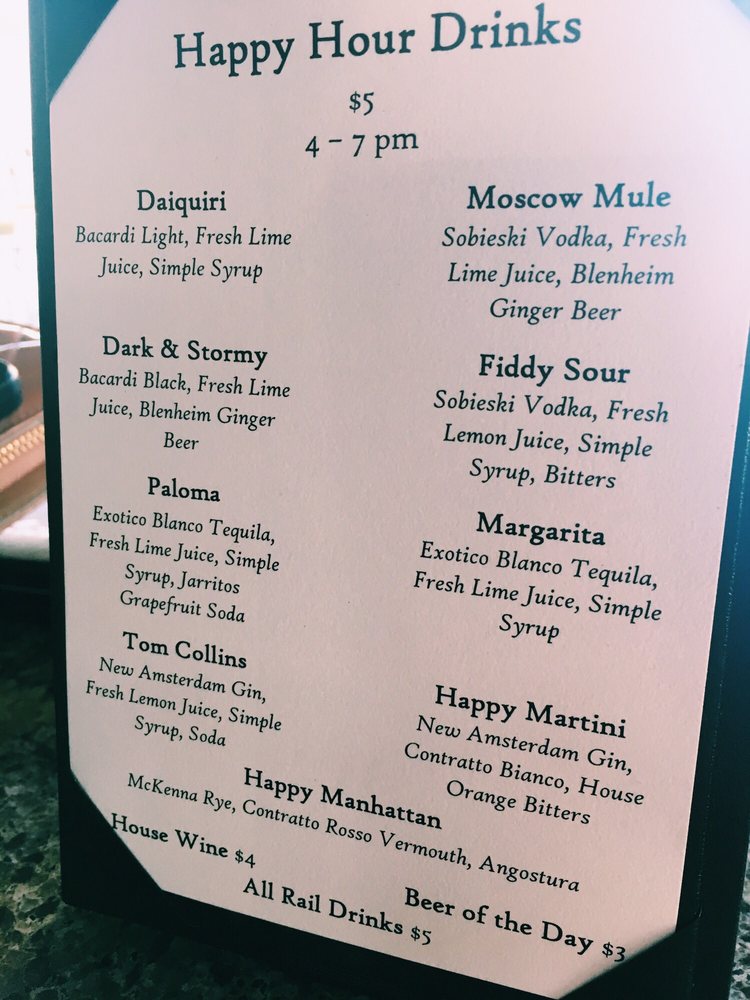 Happy Hour Drinks
$5
4 – 7 pm
Daiquiri
Bacardi Light, Fresh Lime
Juice, Simple Syrup
Dark & Stormy
Bacardi Black, Fresh Lime
Juice, Blenheim Ginger
Beer
Paloma
Exotico Blanco Tequila,
Fresh Lime Juice, Simple
Syrup, Jarritos
Grapefruit Soda
Tom Collins
New Amsterdam Gin,
Fresh Lemon Juice, Simple
Syrup, Soda
Moscow Mule
Sobieski Vodka, Fresh
Lime Juice, Blenheim
Ginger Beer
Fiddy Sour
Sobieski Vodka, Fresh
Lemon Juice, Simple
Syrup, Bitters
Margarita
Exotico Blanco Tequila,
Fresh Lime Juice, Simple
Syrup
Happy Martini
New Amsterdam Gin,
Contratto Bianco, House
Orange Bitters
Happy Manhattan
McKenna Rye, Contratto Rosso Vermouth, Angostura
House Wine $4
Beer of the Day $3
All Rail Drinks $5